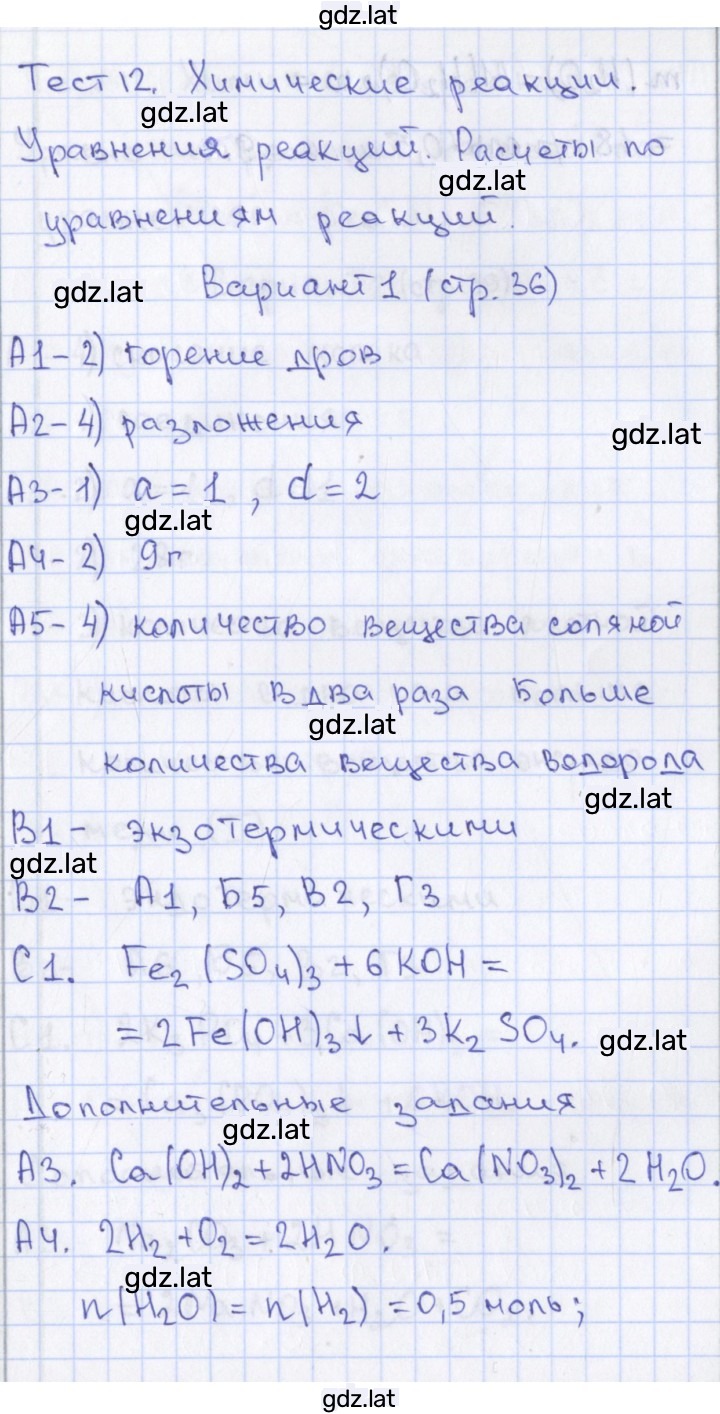 gdz.lat
Тест 12. Химические реакции.
gdz.lat
Уравнения реакций. Расчеты по
gdz.lat
уравнениям реакций.
gdz.lat Вариант 1 (стр. 36)
А1 - 2) горение дров
А2 - 4) разложения
gdz.lat
А3 - 1) a = 1 , d = 2
gdz.lat
А4 - 2) 9г
А5 - 4) количество вещества соляной
кислоты в два раза больше
gdz.lat
количества вещества водорода
gdz.lat
В1 - экзотермическими
gdz.lat
В2 - А1, Б5, В2, Г3
С1. Fe₂(SO₄)₃ + 6KOH =
= 2Fe(OH)₃↓ + 3K₂SO₄.
gdz.lat
Дополнительные задания
gdz.lat
А3. Ca(OH)₂ + 2HNO₃ = Ca(NO₃)₂ + 2H₂O.
А4. 2H₂ + O₂ = 2H₂O.
gdz.lat
n(H₂O) = n(H₂) = 0,5 моль;
gdz.lat